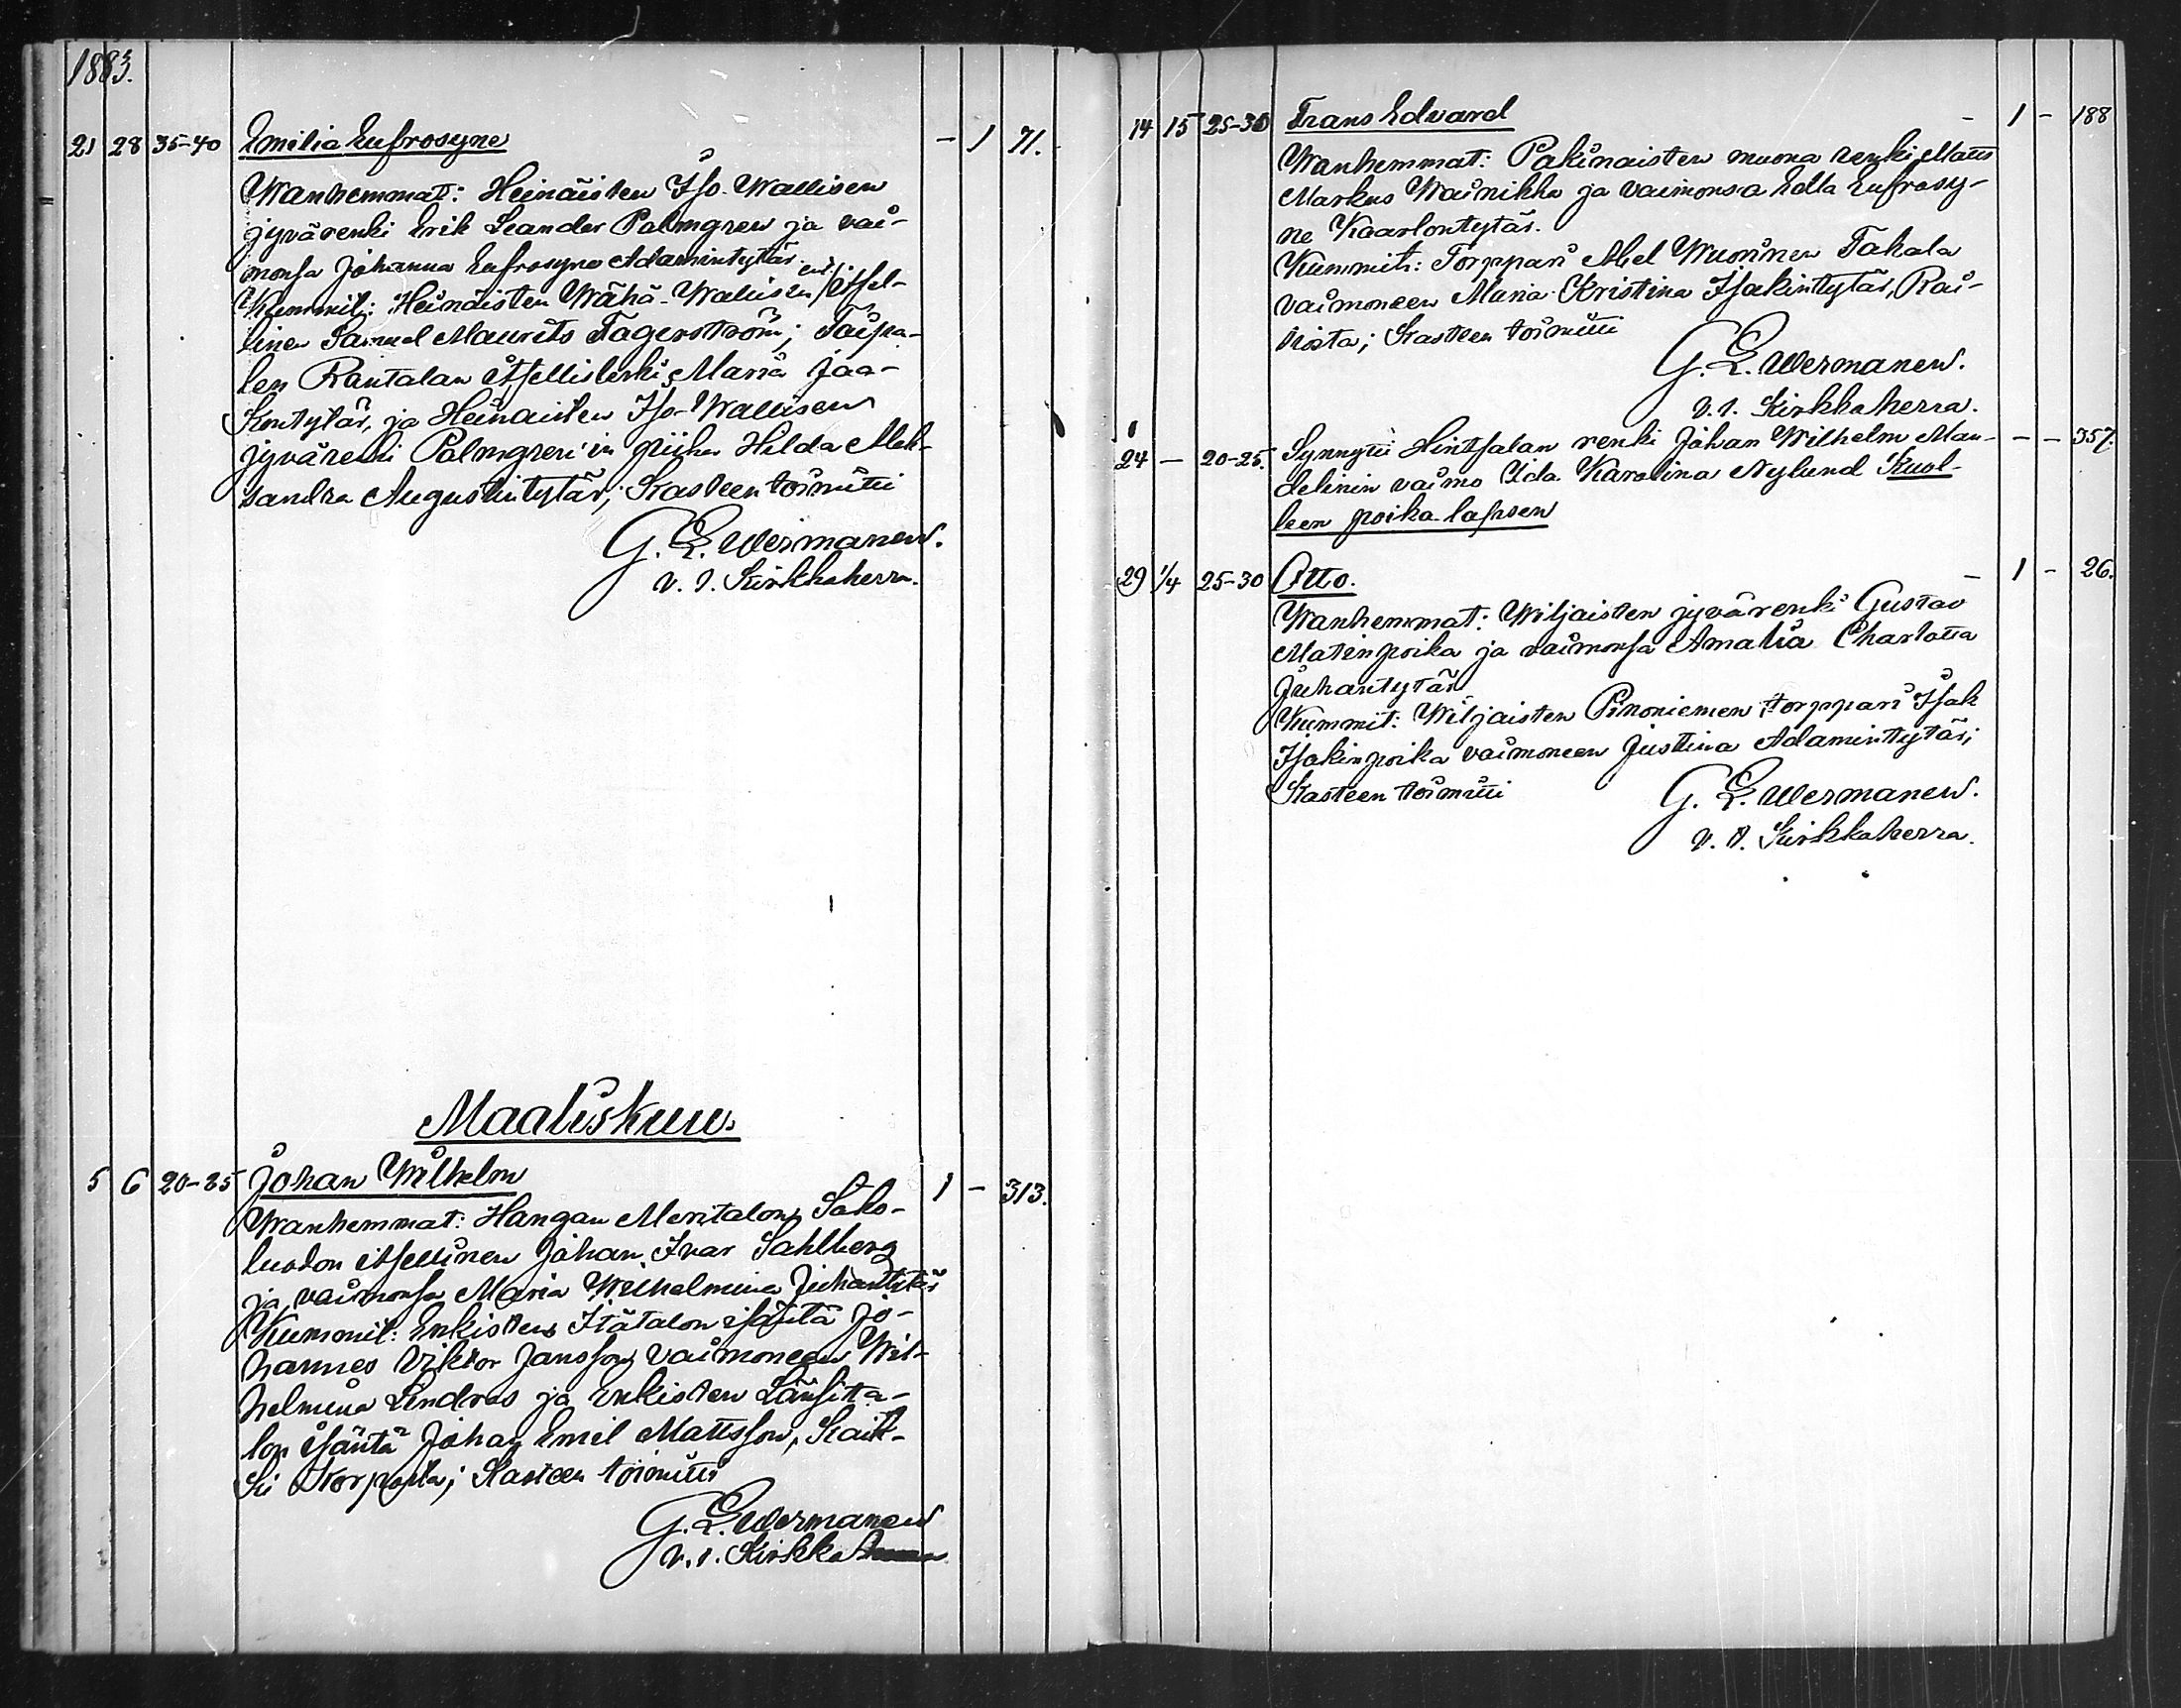 1883.
21 28 35-40 Emilia Eufrosyne - 1 71.
Wanhemmat: Heinäisten Iso-Wallisen
jyvärenki Erik Leander Palmgren ja vai-
monsa Johanna Eufrosyne Adamintytär.
Kummit: Heinäisten Wähä-Wallisen ent. itsel-
linen Samuel Maurits Fagerström; Taipa-
len Rantalan itsellisleski Maria Jaa-
kontytär, ja Heinäisten Iso-Wallisen
jyvärenki Palmgren'in piika Hilda Alek-
sandra Augustintytär; Kasteen toimitti
G. E. Wermanen.
v. t. Kirkkoherra.
Maaliskuu.
5 6 20-25 Johan Wilhelm 1 - 313.
Wanhemmat: Hangan Meritalon, Saks-
luodon itsellinen Johan Ivar Sahlberg
ja vaimonsa Maria Wilhelmina Juhantytär
Kummit: Enkisten Itätalon isäntä Jo-
hannes Viktor Jansson vaimoneen Wil-
helmina Lindros ja Enkisten Länsita-
lon isäntä Johan Emil Mattsson, Kaik-
ki Korposta; Kasteen toimitti
G. E. Wermanen
v. t. Kirkkoherra
14 15 25-30 Frans Edvard - 1 - 188
Wanhemmat: Pakinaisten muona renki Matts
Markus Wainikka ja vaimonsa Edla Eufrosy-
ne Kaarlontytär.
Kummit: Torppari Abel Wuorinen Takala
vaimoneen Maria Kristina Isakintytär, Rai-
siosta; Kasteen toimitti
G. E. Wermanen.
v. t. Kirkkoherra.
24 - 20-25. Synnytti Hintsalan renki Johan Wilhelm Man- - - 357.
delinin vaimo Ida Karolina Nylund Kuol-
leen poika-lapsen
29 1/4 25-30 Otto. - 1 - 26.
Wanhemmat: Wiljaisten jyvärenki Gustav
Matinpoika ja vaimonsa Amalia Charlotta
Juhantytär
Kummit: Wiljaisten Pinoniemen torppari Isak
Isakinpoika vaimoneen Justina Adamintytär;
Kasteen toimitti
G. E. Wermanen.
v. t. Kirkkoherra.